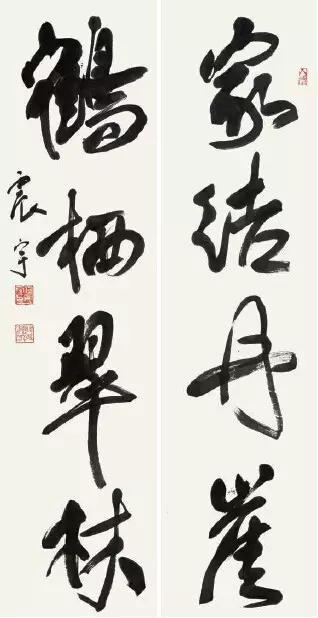 家結丹崖
鶴栖翠林
震宇